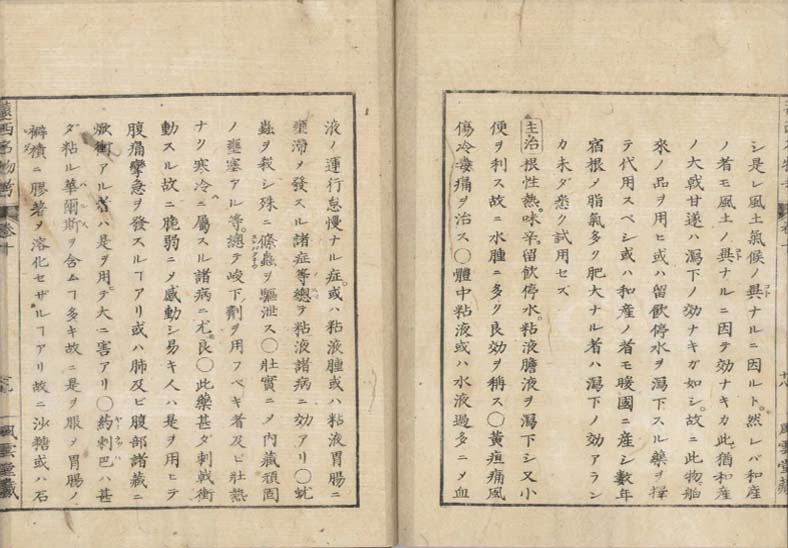 シ是レ風土氣候ノ異ナルニ因ルト。然レバ和産
ノ者モ風土ノ異ナルニ因テ効ナキカ此猶和産
ノ大戟甘遂ハ瀉下ノ効ナキガ如シ。故ニ此物舶
來ノ品ヲ用ヒ或ハ留飲停水ヲ瀉下スル藥ヲ擇
テ代用スベシ或ハ和産ノ者モ暖國ニ産シ數年
宿根〆脂氣多ク肥大ナル者ハ瀉下ノ効アラン
カ未ダ悉ク試用セズ
主治根性熱。味辛。留飲停水。粘液膽液ヲ瀉下シ又小
便ヲ利ス故ニ水腫ニ多ク良効ヲ稱ス〇黃疸痛風
傷冷毒痛ヲ治ス〇體中粘液或ハ水液過多ニ〆血
十八 風雲堂藏
液ノ運行怠慢ナル症。或ハ粘液腫或ハ粘液胃腸ニ
壅滯〆發スル諸症等總テ粘液諸病ニ効アリ〇蚘
蟲ヲ殺シ殊ニ條蟲ヲ驅泄ス〇壯實ニ〆内藏頑固
ノ壅塞アル等。總テ峻下劑ヲ用フベキ者及ビ壯熱
ナク寒冷ニ屬スル諸病ニ尤。良〇此藥甚ダ刺戟衝
動スル故ニ脆弱ニ〆感動シ易キ人ハ是ヲ用ヒテ
腹痛攣急ヲ發スルヿアリ或ハ肺及ビ腹部諸藏ニ
焮衝アル者ハ是ヲ用テ大ニ害アリ〇葯刺巴ハ甚
ダ粘ル華爾斯ヲ含ムヿ多キ故ニ是ヲ服〆胃腸ノ
襞積ニ膠著〆溶化セザルヿアリ故ニ沙糖或ハ石
遠西名物考 卷十 風雲堂藏